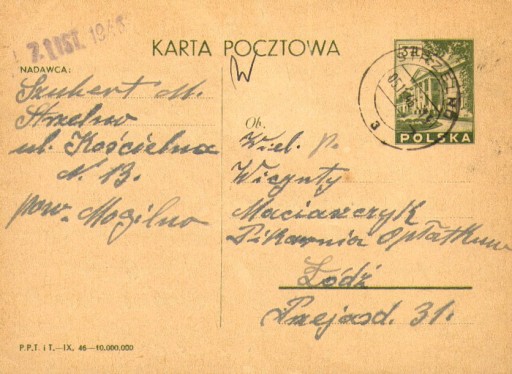 21 LIST. 1946
KARTA POCZTOWA
NADAWCA:
Szubert M.
Strzelno
ul. Kościelna
N. 13.
pow. Mogilno
W
Ob.
Wiel. p.
Wincnty
Maciaszczyk
Pikarnia Opłatkow
Łódź
Przejazd. 31.
STRZELNO
POLSKA
P.P.T. i T.—IX. 46—10.000.000